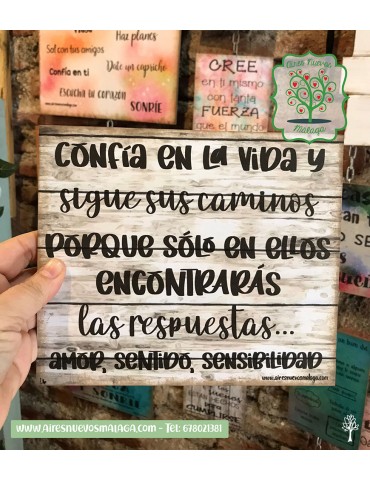 Haz planes
Sal con tus amigos
Date un capricho
Confía en ti
Escucha tu corazón
SONRÍE
CREE
en ti mismo
con tanta
FUERZA
que el mundo
Aires Nuevos
Málaga
CONFÍA EN LA VIDA Y
sigue sus caminos
PORQUE SÓLO EN ELLOS
ENCONTRARÁS
las respuestas...
AMOR, SENTIDO, SENSIBILIDAD
www.airesnuevosmalaga.com
www.airesnuevosmalaga.com - Tel: 678021381